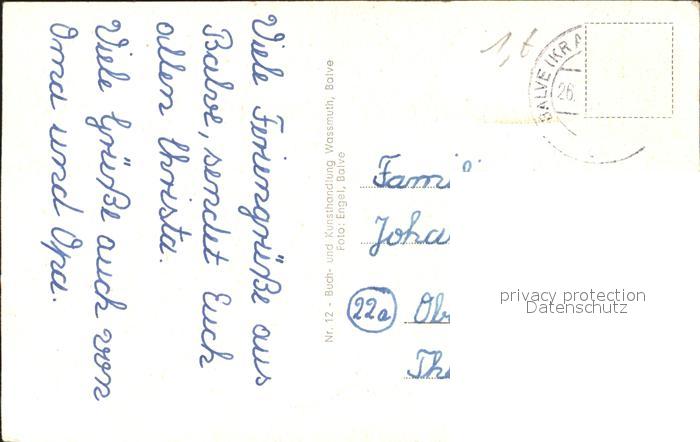 Viele Feriengrüße aus
Balve, sendet Euch
allen Christa.
Viele Grüße auch von
Oma und Opa.
Nr. 12 - Buch- und Kunsthandlung Wassmuth, Balve
Foto: Engel, Balve
BALVE (KR A
26.
Fami
Joha
22a
privacy protection
Datenschutz